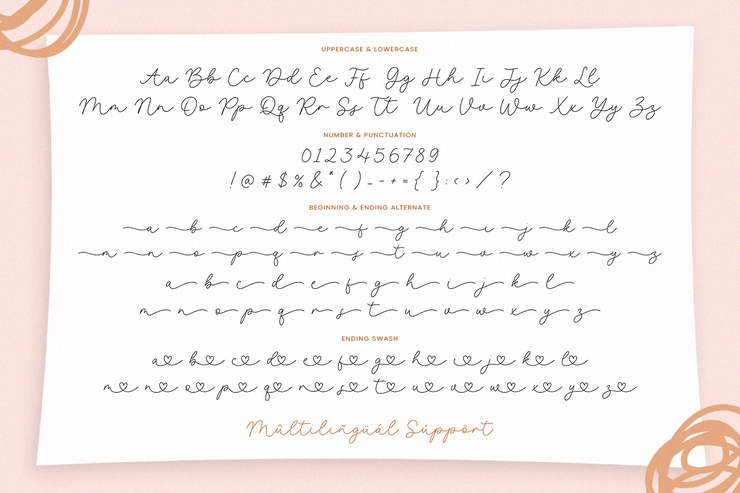 UPPERCASE & LOWERCASE
Aa Bb Cc Dd Ee Ff Gg Hh Ii Jj Kk Ll
Mm Nn Oo Pp Qq Rr Ss Tt Uu Vv Ww Xx Yy Zz
NUMBER & PUNCTUATION
0123456789
! @ # $ % & * ( ) _ - + = { } : < > / ?
BEGINNING & ENDING ALTERNATE
a b c d e f g h i j k l
m n o p q r s t u v w x y z
a b c d e f g h i j k l
m n o p q r s t u v w x y z
ENDING SWASH
a♡ b♡ c♡ d♡ e♡ f♡ g♡ h♡ i♡ j♡ k♡ l♡
m♡ n♡ o♡ p♡ q♡ r♡ s♡ t♡ u♡ v♡ w♡ x♡ y♡ z♡
Mûltílíñgüál Súppört